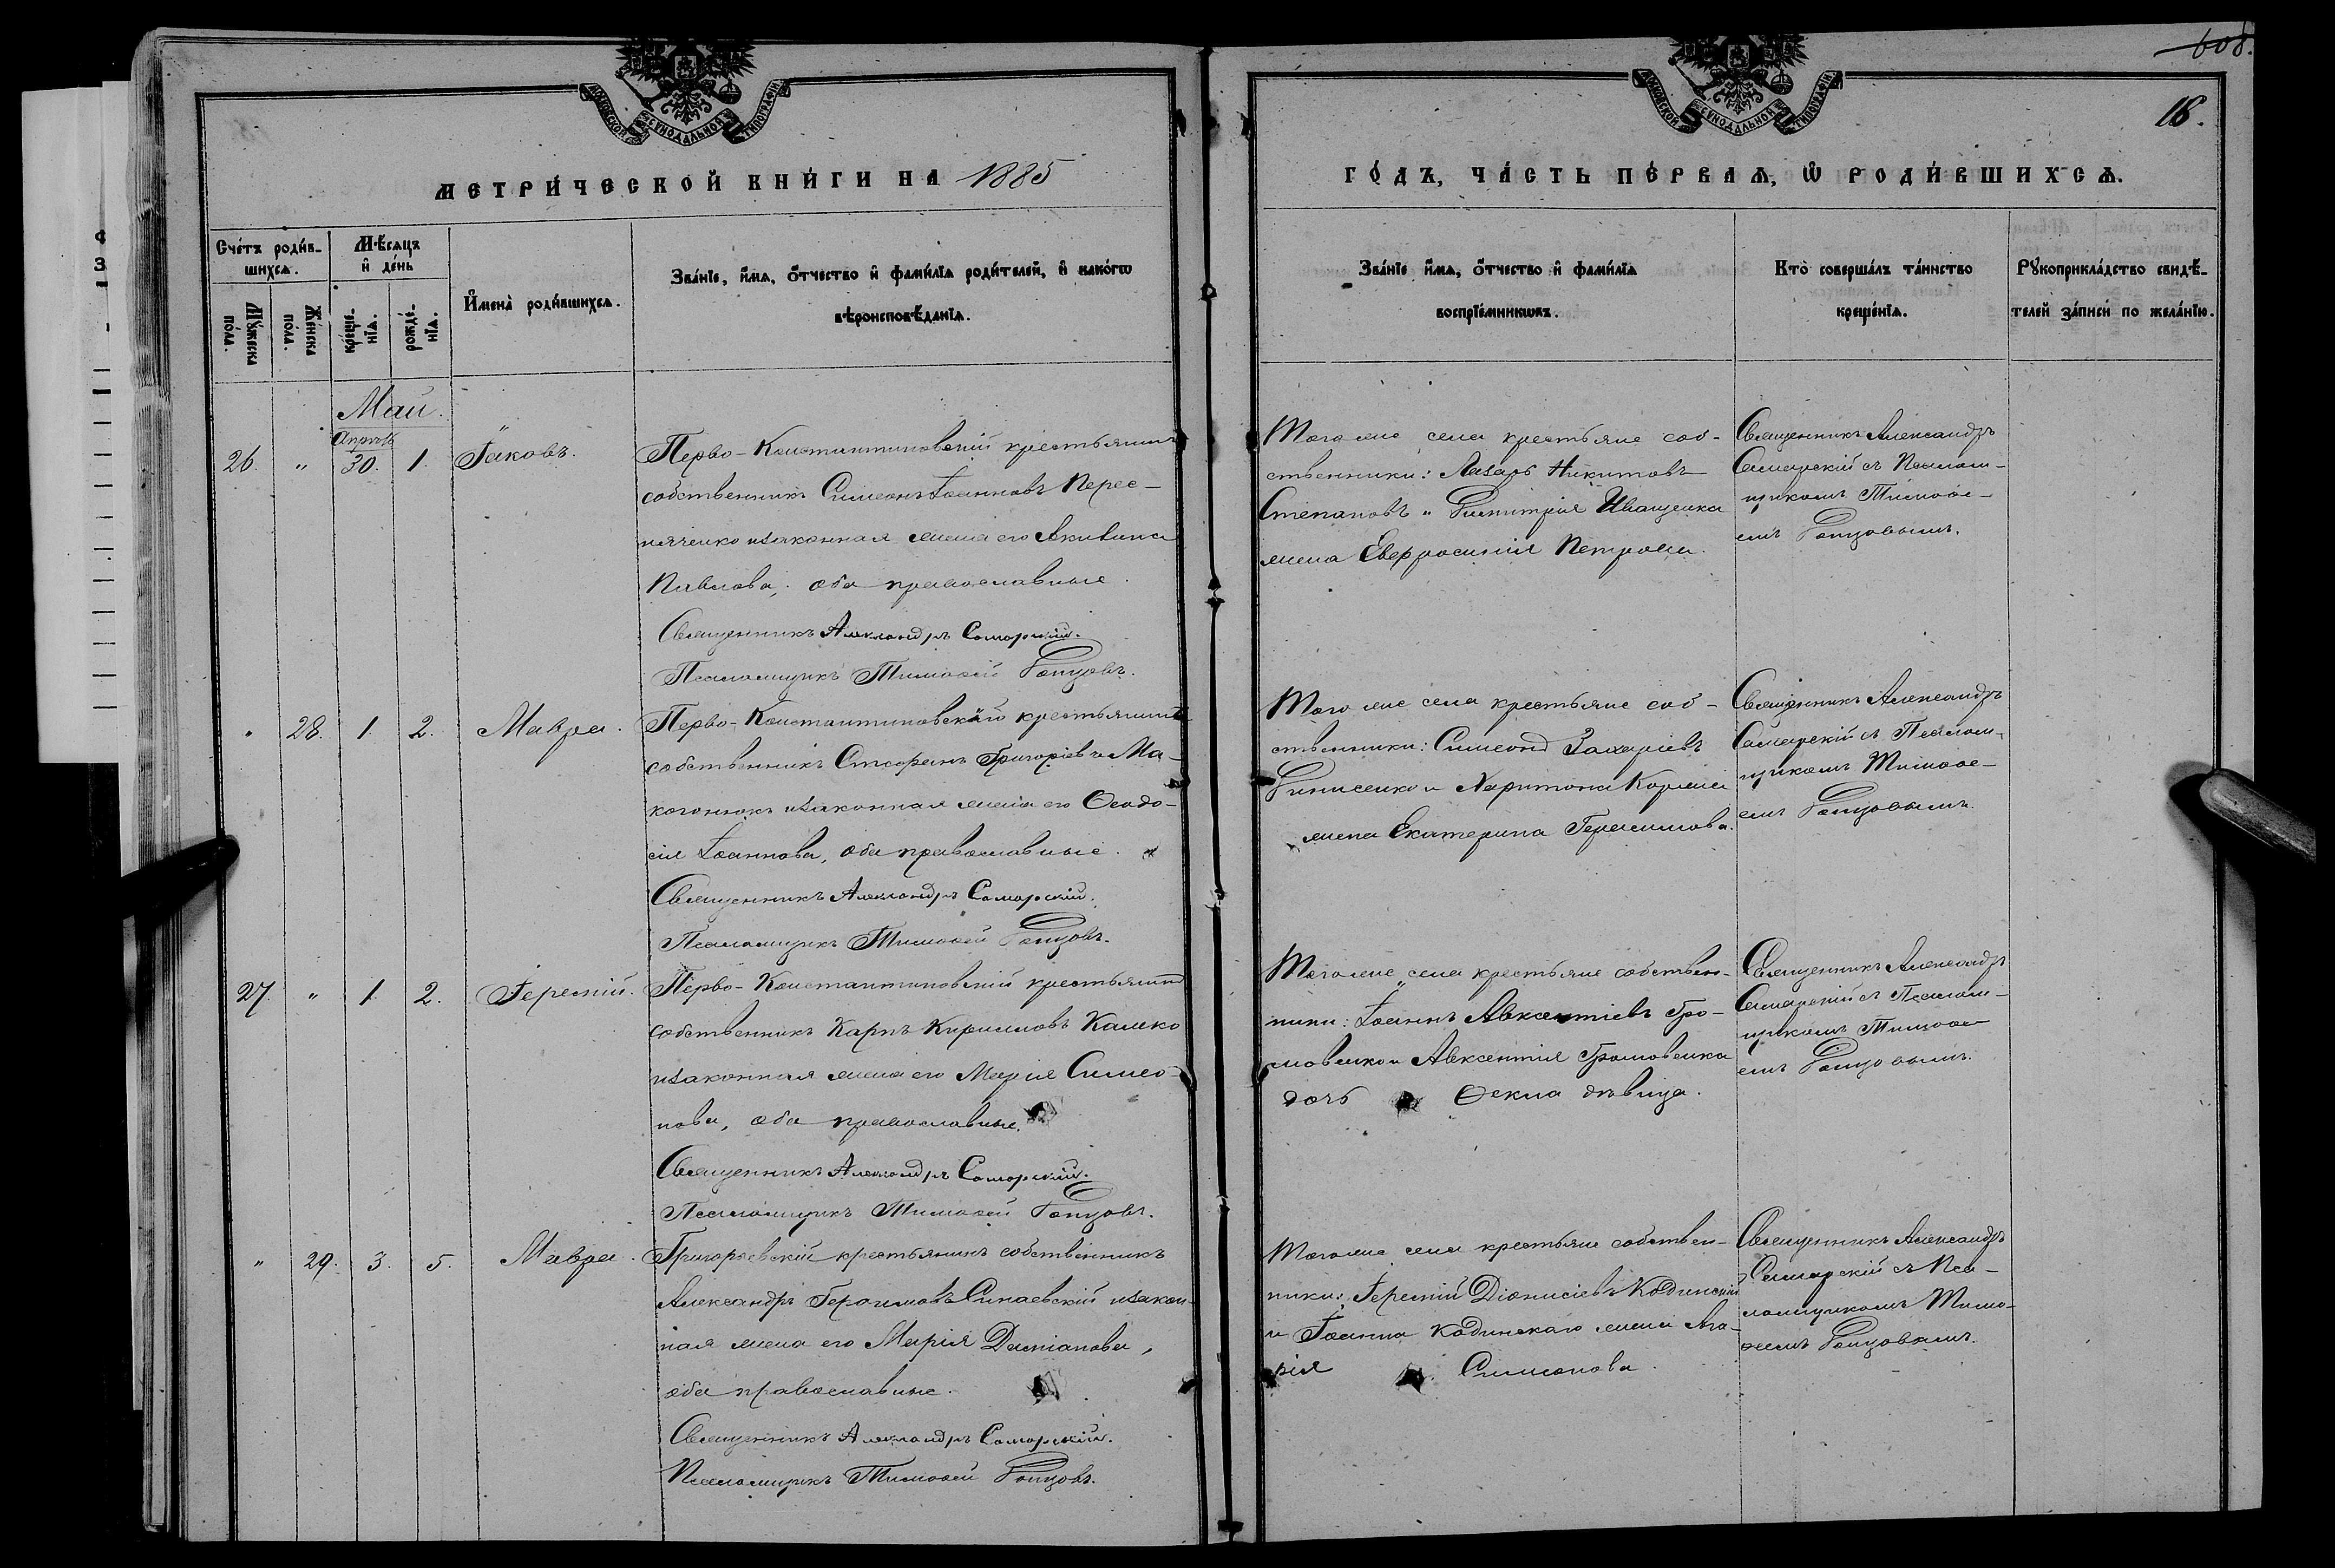 608.
18.
МОСКОВСКОЙ СѴНОДАЛЬНОЙ ТИПОГРАФІИ
МОСКОВСКОЙ СѴНОДАЛЬНОЙ ТИПОГРАФІИ
МЕТРИ́ЧЕСКОЙ КНИ́ГИ НА 1885
ГО́ДЪ, ЧА́СТЬ ПЕ́РВАѦ, Ѡ҆ РОДИ́ВШИХСѦ.
Сче́тъ роди́в-
шихсѧ.
Мѣ́сѧцъ
и҆ де́нь
Мꙋ́жеска
по́ла.
Же́нска
по́ла.
креще́-
нїѧ.
рожде́-
нїѧ.
И҆мена̀ роди́вшихсѧ.
Зва́нїе, и҆́мѧ, ѻ҆́тчество и҆ фами́лїѧ роди́телей, и҆ како́гѡ
вѣроисповѣ́данїѧ.
Зва́нїе и҆́мѧ, ѻ҆́тчество и҆ фами́лїѧ
воспрїе́мникѡвъ.
Кто̀ соверша́лъ та́инство
креще́нїѧ.
Рꙋкоприкла́дство свидѣ́-
телей за́писи по жела́нїю.
Май.
26. " Апрѣль 30. 1. Іаковъ.
Перво-Константиновскій крестьянинъ
собственникъ Симеонъ Іоанновъ Перес-
пяченко и законная жена его Акилина
Павлова, оба православные.
Священникъ Александръ Самарскій.
Псаломщикъ Тимоѳей Гонцовъ.
Того же села крестьяне соб-
ственники: Лазарь Никитовъ
Степановъ и Димитрія Иващенка
жена Евфросинія Петрова.
Священникъ Александръ
Самарскій съ Псалом-
щикомъ Тимоѳе-
емъ Гонцовымъ.
" 28. 1 2. Мавра.
Перво-Константиновскаго крестьянинъ
собственникъ Стефанъ Григоріевъ Ма-
когонюкъ и законная жена его Ѳеодо-
сія Іоаннова, оба православные.
Священникъ Александръ Самарскій.
Псаломщикъ Тимоѳей Гонцовъ.
Того же села крестьяне соб-
ственники: Симеонъ Захаріевъ
Динисенко и Харитона Коржа
жена Екатерина Герасимова.
Священникъ Александръ
Самарскій съ Псалом-
щикомъ Тимоѳе-
емъ Гонцовымъ.
27. " 1 2. Іеремій.
Перво-Константиновскій крестьянинъ
собственникъ Карпъ Кирилловъ Калеко
и законная жена его Марія Симео-
нова, оба православные.
Священникъ Александръ Самарскій.
Псаломщикъ Тимоѳей Гонцовъ.
Того же села крестьяне собствен-
ники: Іоаннъ Авксентіевъ Гро-
мовенко и Авксентія Громовенка
дочь Ѳекла дѣвица.
Священникъ Александръ
Самарскій съ Псалом-
щикомъ Тимоѳе-
емъ Гонцовымъ.
" 29. 3. 5. Мавра.
Григорьевскій крестьянинъ собственникъ
Александръ Герасимовъ Синаевскій и закон-
ная жена его Марія Даміанова,
оба православные.
Священникъ Александръ Самарскій.
Псаломщикъ Тимоѳей Гонцовъ.
Того же села крестьяне собствен-
ники: Іеремій Діонисіевъ Кодинскій
и Іоанна Кодинскаго жена Ма-
рія Симеонова.
Священникъ Александръ
Самарскій съ Пса-
ломщикомъ Тимо-
ѳеемъ Гонцовымъ.